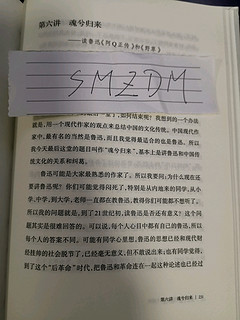 第六讲 魂兮归来
——读鲁迅《阿Q正传》和《野草》
SMZDM
如何结束呢？我想到的一个办法
就是，用一个现代作家的观点来总结中国的文化传统。中国现代作
家中，最有名的当然是鲁迅，而且我觉得最适合的也是鲁迅。所以我
今天最后这堂的题目叫作“魂兮归来”，基本上是讲鲁迅和中国传
统文化的关系和纠葛。
鲁迅可能是大家最熟悉的作家了。所以我要问：为什么现在还
要讲鲁迅呢？你们可能觉得闷死了，特别是从内地来的同学，从小
学、中学，到大学，老师一直都在教鲁迅，教得你们可能都不想听了。
所以我的问题就是，到了21世纪初，谈鲁迅是否还有意义？这个问
题其实是很难回答的。可以说，每个人心目中都有自己的鲁迅，所以
每个人的答案不同。可能有同学心里想，鲁迅的思想已经和现代财
经挂帅的社会脱节了，已经毫无意义，但不敢说出来；也有同学觉得，
到了这个“后革命”时代，把鲁迅和革命连在一起这种论述也已经过
第六讲：魂兮归来